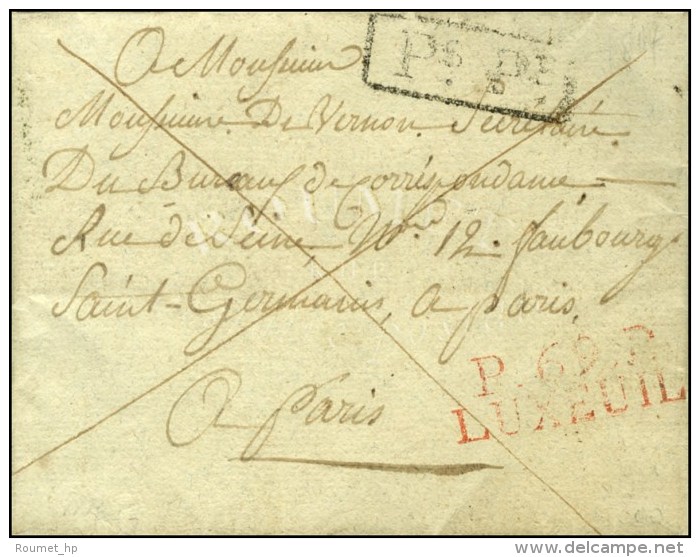 A Monsieur
Ps. Ps.
Monsieur De Vernon. Secretaire.
Du Bureau de Correspondance
Rue de Seine, No. 12. faubourg
Saint-Germain, a paris,
P. 69. P.
LUXEUIL
A paris
Roumet_hp
© delcampe.net